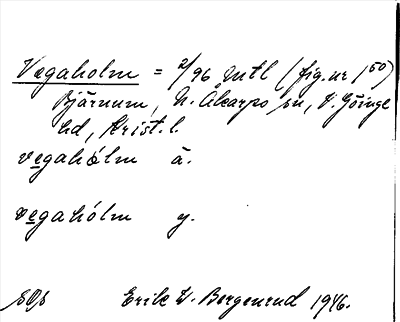 Vegaholm = 2/96 mtl (fig.nr 150)
Bjärnum, N. Åkarps sn, V. Göinge
hd, Krist. l.
vegahólm ä.
vegahólm y.
Erik W. Bergenrud 1946.